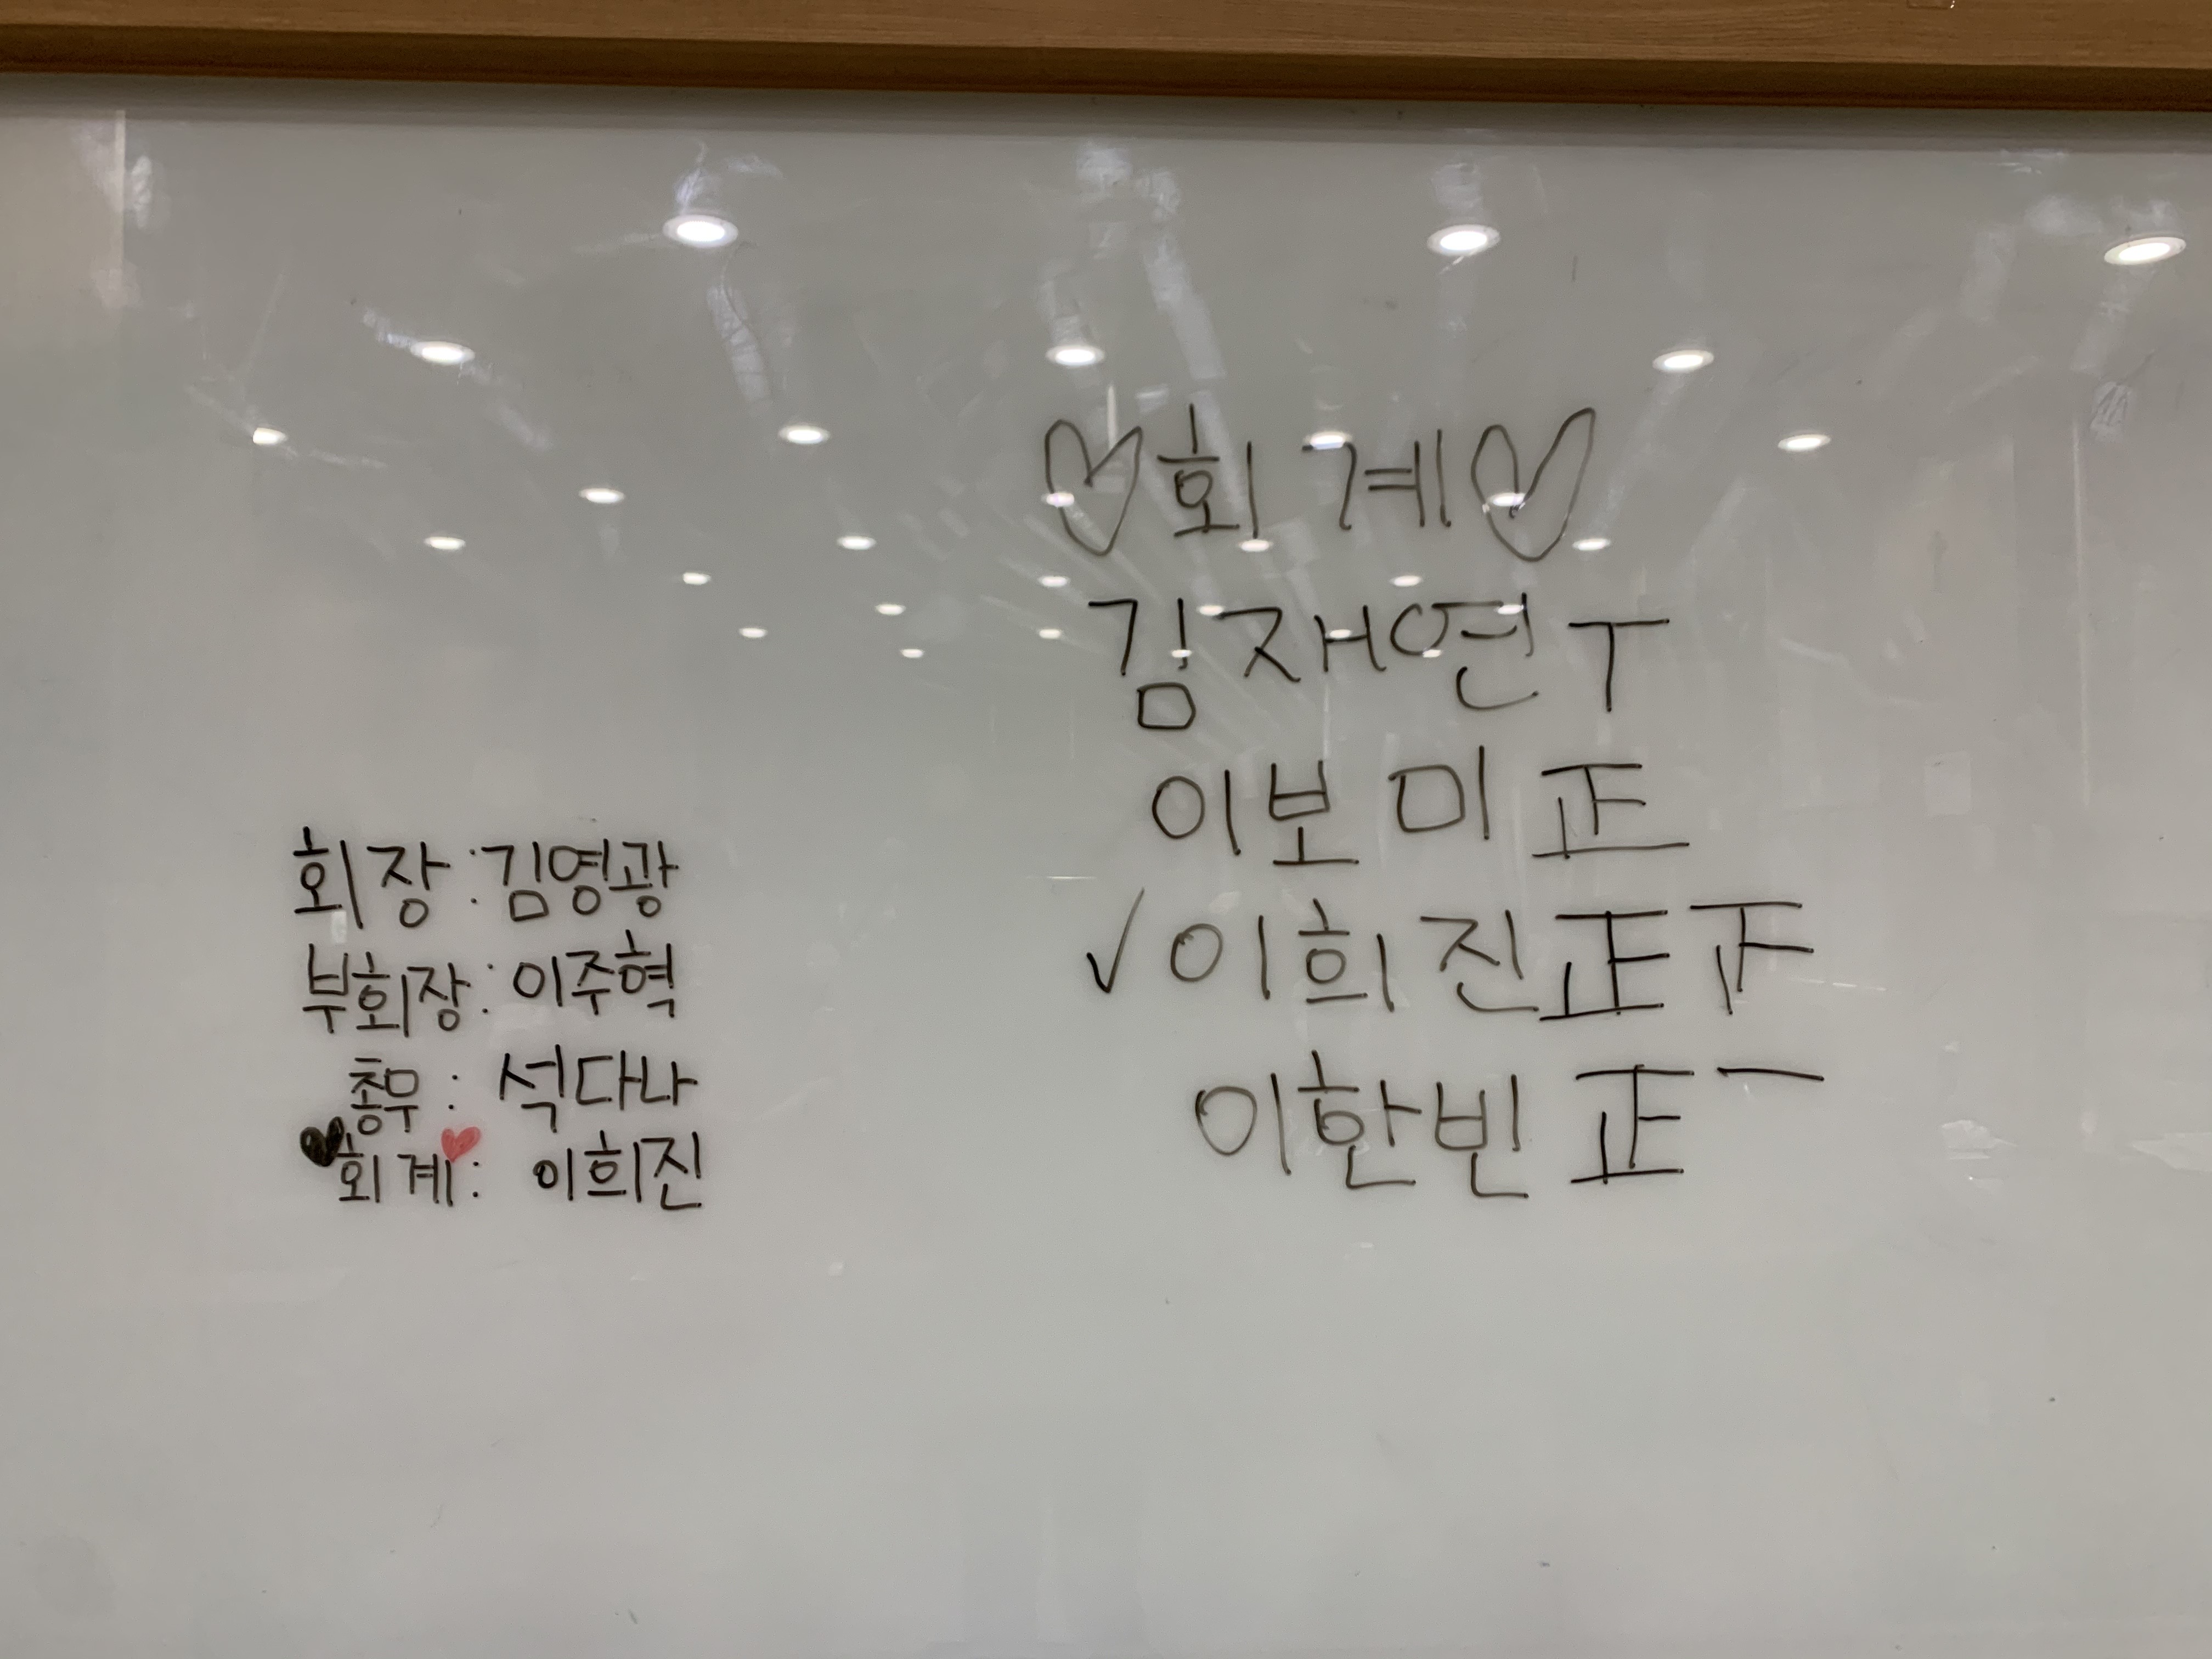 ♡회계♡
김재연 ㅜ
이보미 正
✓이희진 正 正
이한빈 正 一
회장 : 김영광
부회장 : 이주혁
총무 : 석다나
♥회계♥ : 이희진